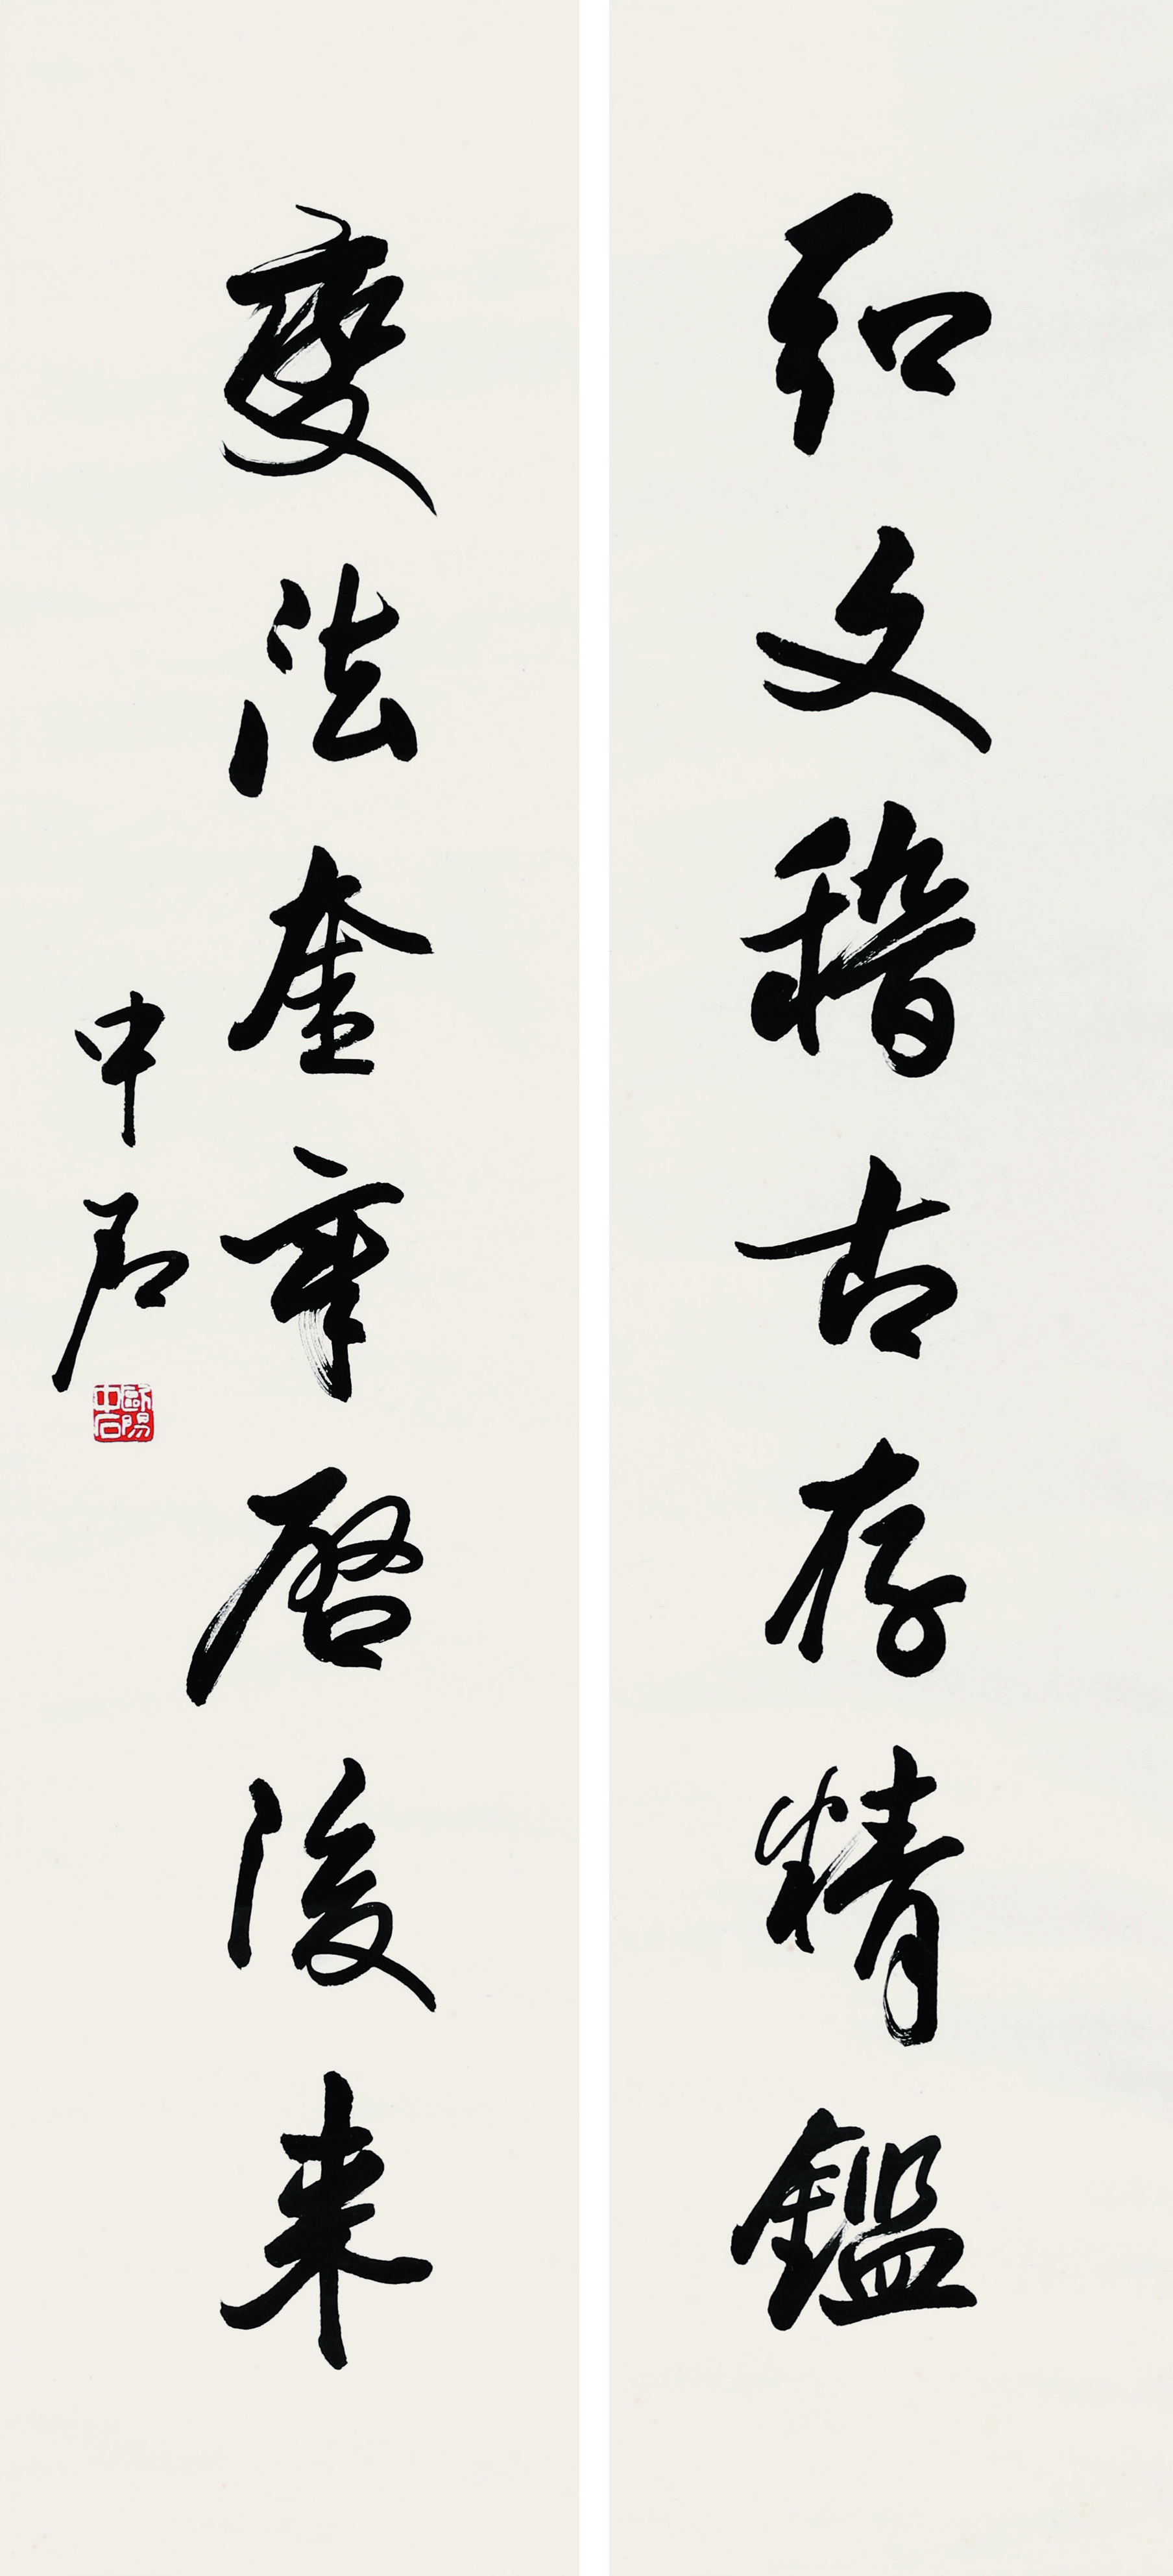 弘文稽古存精鑑
變法奎章啓後来
中石
歐陽中石